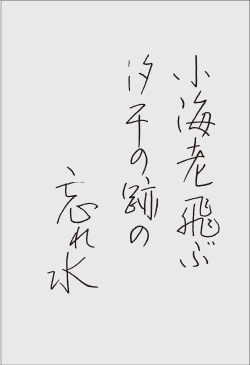 小海老飛ぶ
汐干の跡の
忘れ水